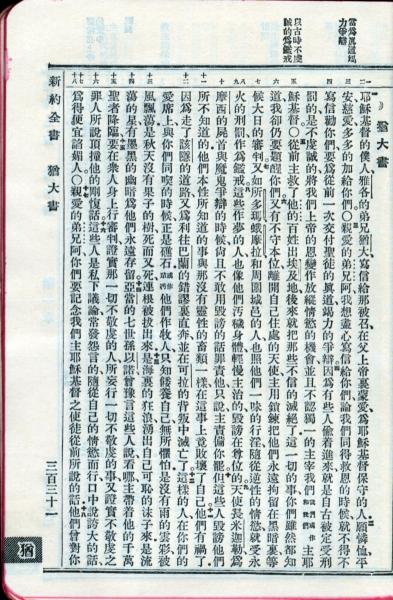 當爲眞道竭
力爭辯
以古時不虔
誠的爲鑑戒
猶大書
耶穌基督的僕人雅各的弟兄猶大寫信給那被召在父上帝裏蒙愛爲耶穌基督保守的人願憐恤平
安慈愛多多的加給你們○親愛的弟兄阿我想盡心寫信給你們論我們同得救恩的時候就不得不
寫信勸你們要爲從前一次交付聖徒的眞道竭力的爭辯因爲有些人偷着進來就是自古被定受刑
罰的是不虔誠的將我們上帝的恩變作放縱情慾的機會並且不認獨一的主宰我們我們或作和我們主耶
穌基督○從前主救了他的百姓出埃及地後來就把那些不信的滅絕了這一切的事你們雖然都知
道我卻仍要題醒你們又有不守本位離開自己住處的天使主用鎖鍊把他們永遠拘留在黑暗裏等
候大日的審判又如所多瑪蛾摩拉和周圍城邑的人也照他們一味的行淫隨從逆性的情慾就受永
火的刑罰作爲鑑戒這些作夢的人也像他們汚穢身體輕慢主治的毀謗在尊位的天使長米迦勒爲
摩西的屍首與魔鬼爭辯的時候尙且不敢用毀謗的話罪責他只說主責備你罷但這些人毀謗他們
所不知道的他們本性所知道的事與那沒有靈性的畜類一樣在這事上竟敗壞了自己他們有禍了
因爲走了該隱的道路又爲利往巴蘭的錯謬裏直奔並在可拉的背叛中滅亡了這樣的人在你們的
愛席上與你們同喫的時候正是礁石或作玷汚他們作牧人只知餧養自己無所懼怕是沒有雨的雲彩被
風飄蕩是秋天沒有果子的樹死而又死連根被拔出來是海裏的狂浪湧出自己可恥的沫子來是流
蕩的星有墨黑的幽暗爲他們永遠存留亞當的七世孫以諾曾豫言這些人說看哪主帶着他的千萬
聖者降臨要在衆人身上行審判證實那一切不敬虔的人所妄行一切不敬虔的事又證實不敬虔之
罪人所說頂撞他的剛愎話這些人是私下議論常發怨言的隨從自己的情慾而行口中說誇大的話
爲得便宜諂媚人○親愛的弟兄阿你們要記念我們主耶穌基督之使徒從前所說的話他們曾對你
新約全書 猶大書 三百三十一
猶